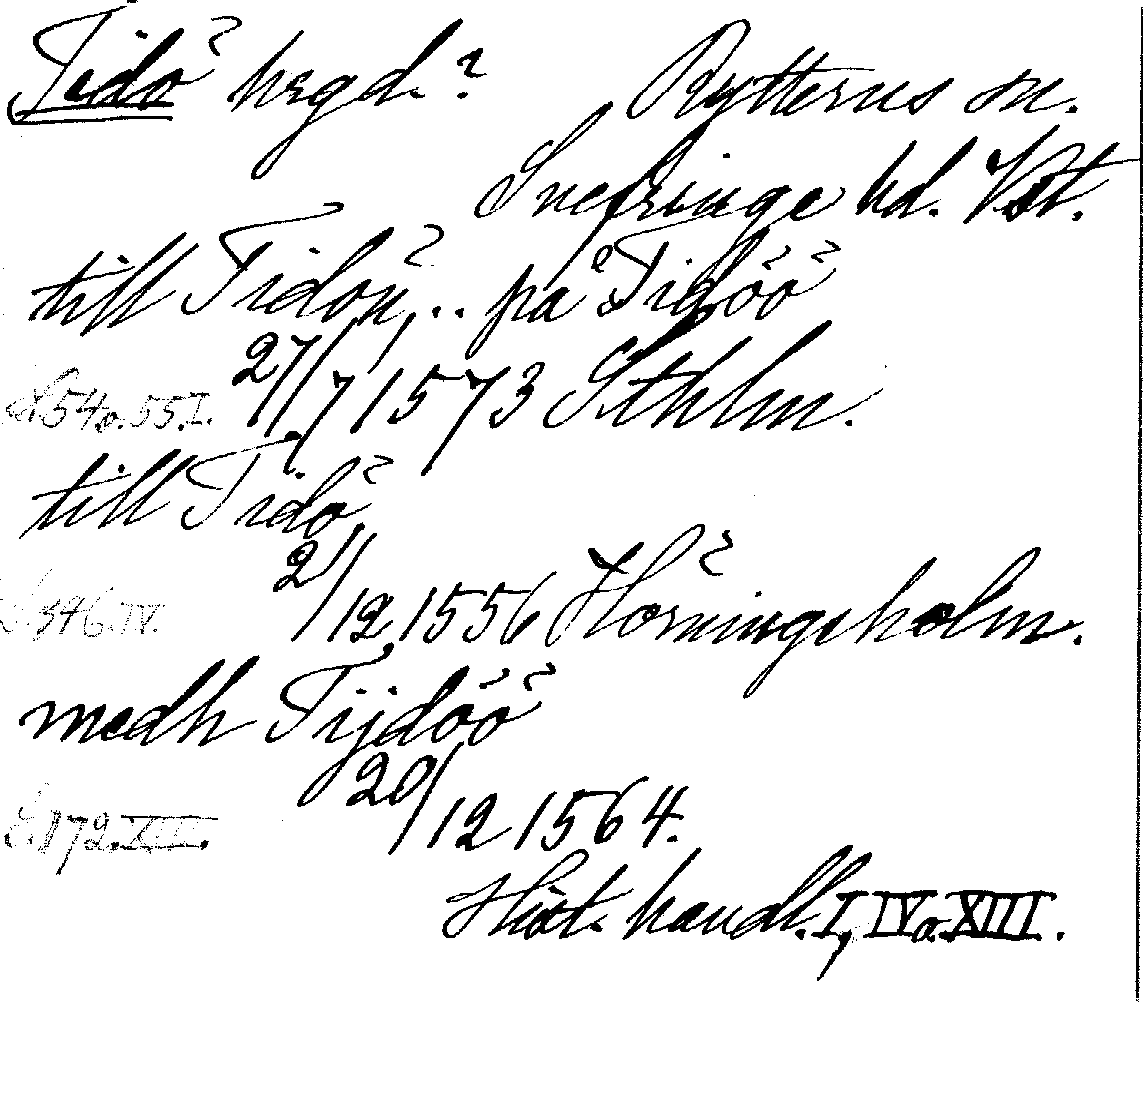 Tidö hrgd.? Rytterns sn.
Snefringe hd. Vstl.
till Tidön... på Tidöö
S. 54 o. 55. I. 27/7 1573 Sthlm.
till Tidö
S. 346. IV. 2/12 1556 Hörningsholm.
medh Tijdöö
S. 172. XIII. 20/12 1564.
Hist. handl. I, IV o. XIII.